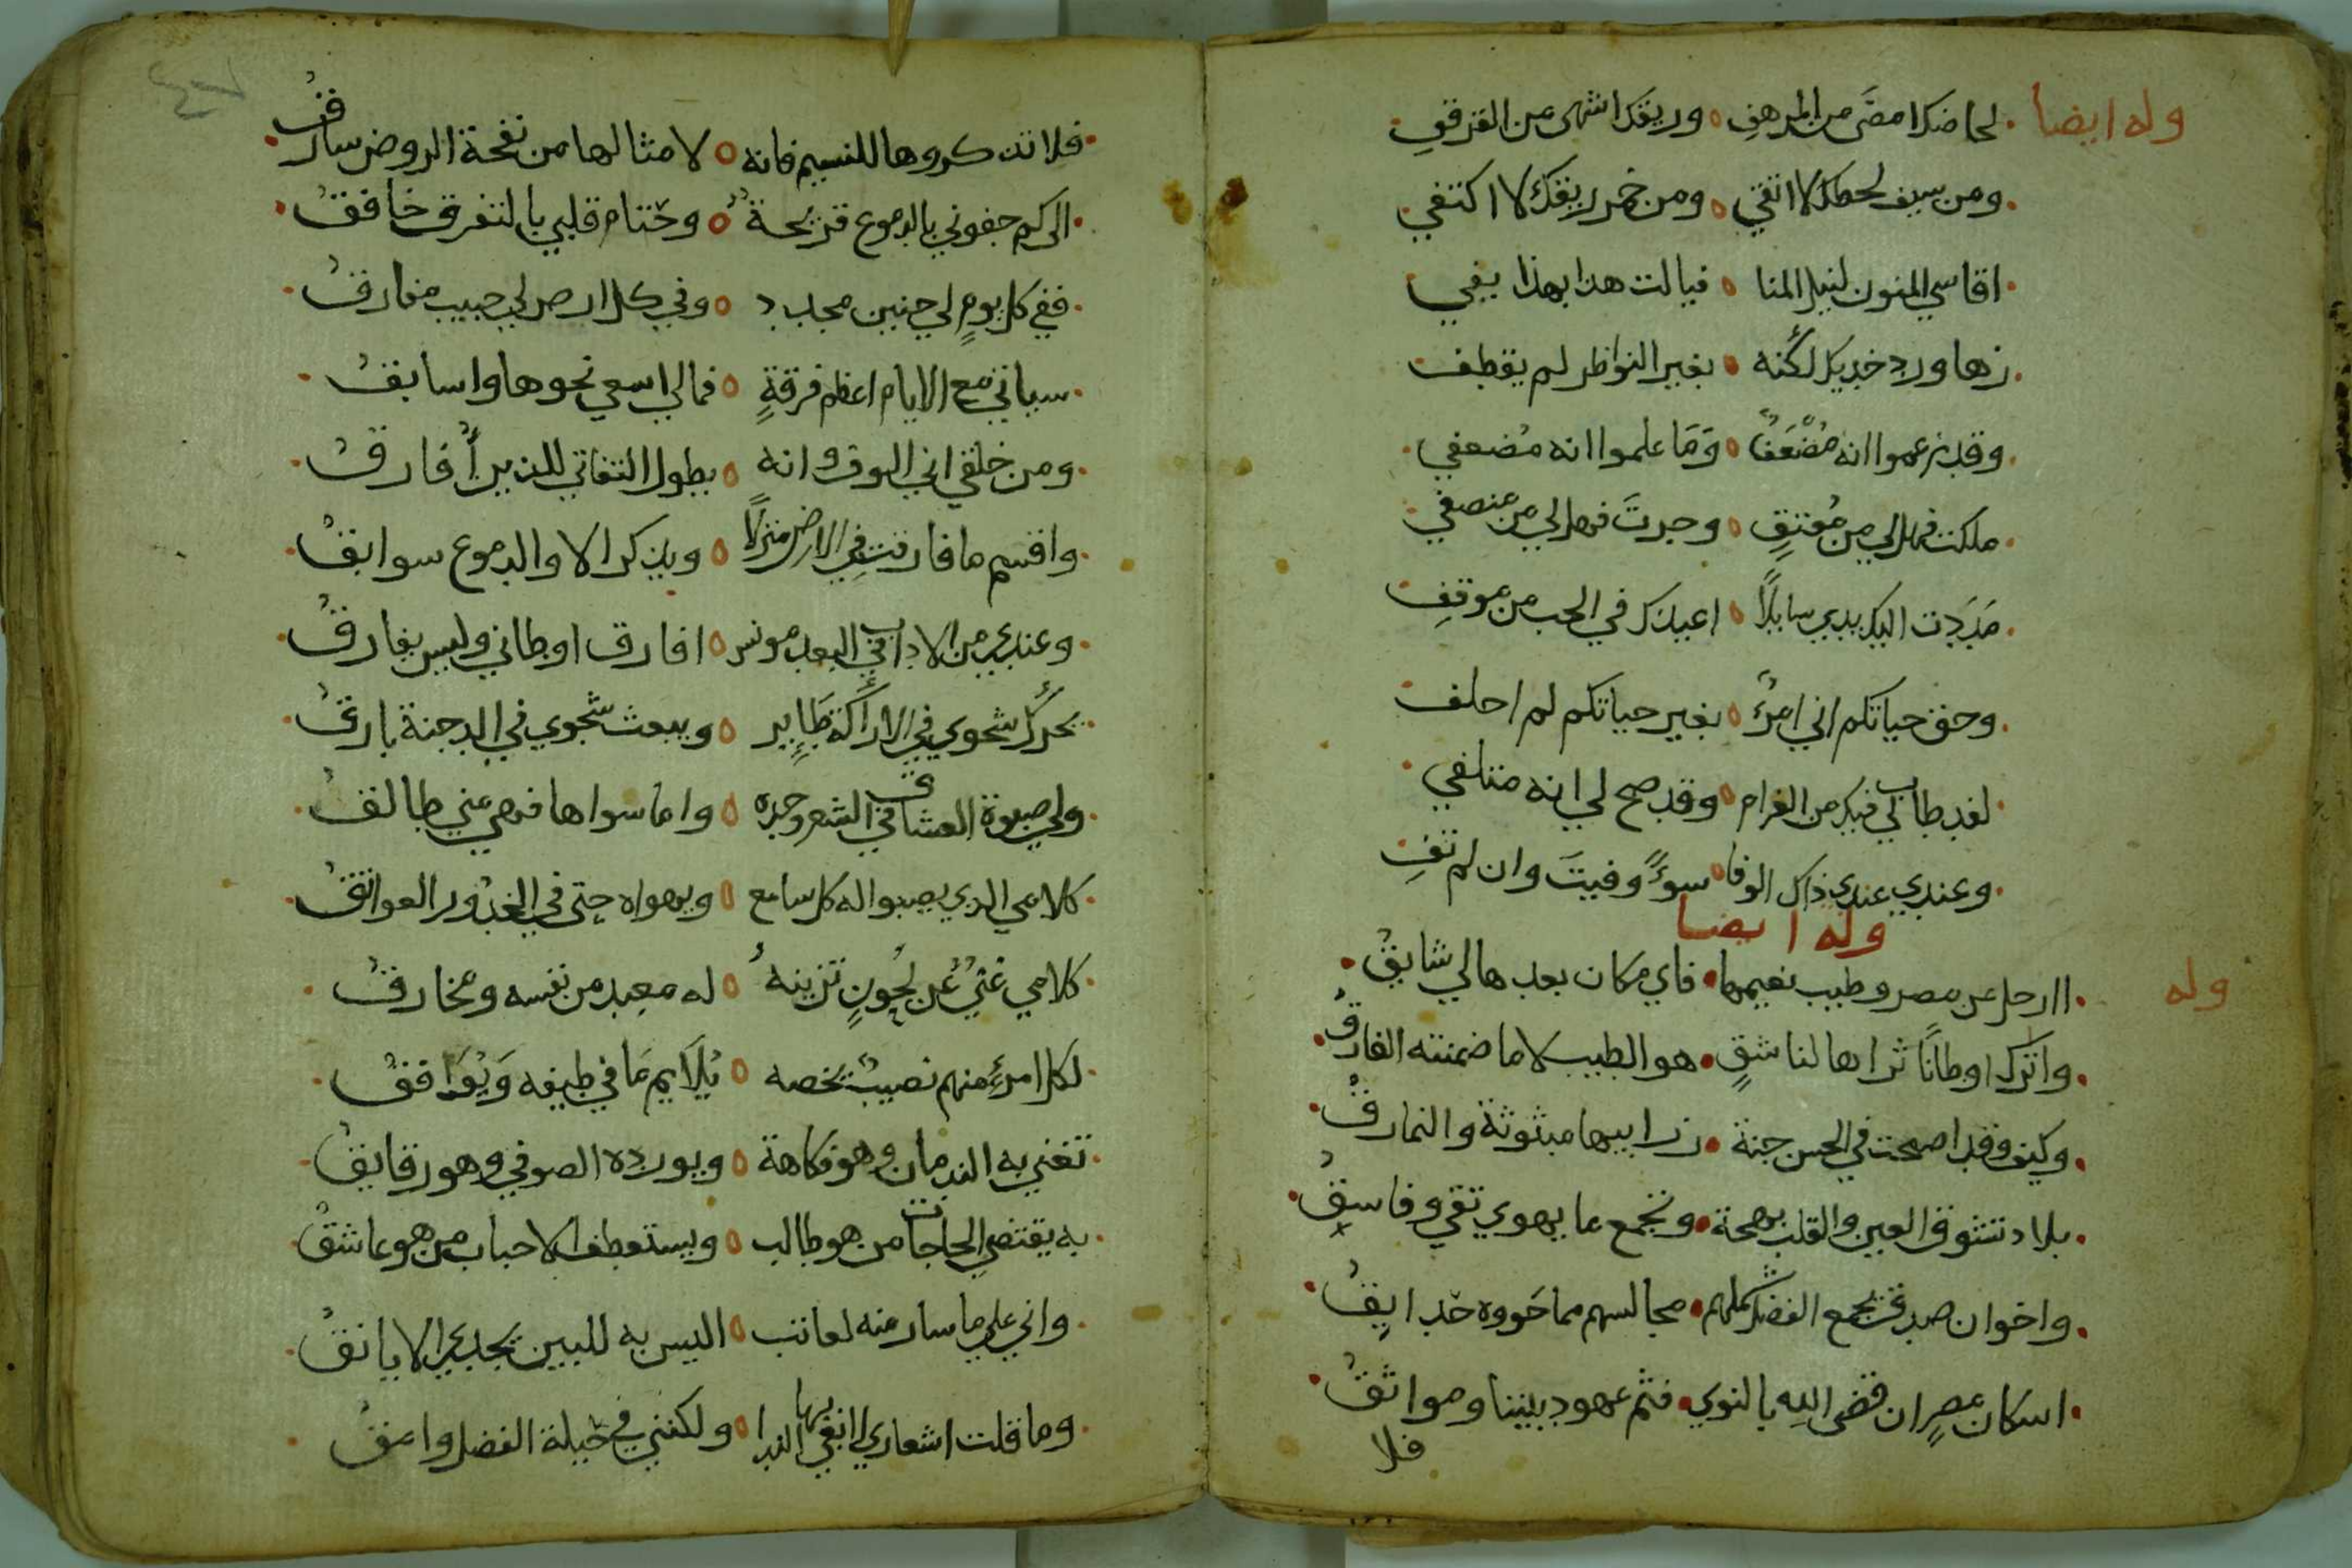 وله ايضا
لحاضك امضَى من المرهفِ وريقك اشهى من القرقفِ
ومن سيف لحظك لا اتقي ومن خمر ريقك لا اكتفي
اقاسي المنون لنيل المنا فيالت هذا بهذا يفي
زها ورد خديك لكنه بغير النواظر لم يقطف
وقد زعموا انه مُضْعَفٌ وَمَا علموا انه مُضعفي
ملكت فهل لي من مُعتِقٍ وجرتَ فهل لي من منصفي
مَدَدت اليك يدي سايلًا اعيذك في الحب من موقفِ
وحق حياتكم اني امرءٌ بغير حياتكم لم احلف
لقد طاب لي فيك من الغرام وقد صح لي انه متلفي
وعندي عندي ذاك الوفا سوءً وفيتَ وان لم تفِ
وله ايضا
وله
اارحل عن مصر وطيب نعيمها فاي مكان بعدها لي شايقُ
واترك اوطانًا ثراها لناشقٍ هو الطيب لا ما ضمنته الفارقُ
وكيف وقد اصحت في الحسن جنة زرابيها مبثوثة والنمارقُ
بلاد تشوق العين والقلب بهجة وتجمع ما يهوي تقي وفاسقُ
واخوان صدق يجمع الفضل شملهم مجالسهم مما حَووه حدايقُ
اسكان مصرٍ ان قضى الله بالنوي فثم عهود بيننا ومواثقُ
فلا
٤٧
فلا تذكروها للنسيم فانه لامثالها من نفحة الروض سارقُ
الى كم جفوني بالدموع قريحةٌ وحتام قلبي بالتفرق خافقُ
ففي كل يومٍ لي حنين مجدد وفي كل ارض لي حبيب مفارقُ
سياتي مع الايام اعظم فرقةٍ فمالي اسعي نحوها واسابقُ
ومن خلقي اني الوف وانه يطول التفاتي للذين أُفارقُ
واقسم ما فارقت في الارض منزلًا ويذكر الا والدموع سوابقُ
وعندي من الاداب في البعد مونس افارق اوطاني وليس يفارقُ
يحركُ شجوي في الاراكة طَايِر ويبعث شجوي في الدجنة بارقُ
ولي صبوة العشاق في الشعر وحده واما سواها فهي مني طالقُ
كلامي الذي يصبوا له كل سامع ويهواه حتى في الخدور العواتقُ
كلامي غنيٌ عن لحُونٍ تزينهُ له معبد من نفسه ومخارقُ
لكل امرءٍ منهم نصيبٌ يخصه يُلَايم مَا في طبعه وَيُوَافقُ
تغني به الندمان وهو فكاهة ويورده الصوفي وهو رقايقُ
به يقتضي الحاجات من هو طالب ويستعطف الاحباب من هو عاشقُ
واني علي ما سار منه لعاتب اليس به للبين تحدي الايانقُ
وما قلت اشعاري ابغي بها الندا ولكنني في حَيلة الفضل وامقُ